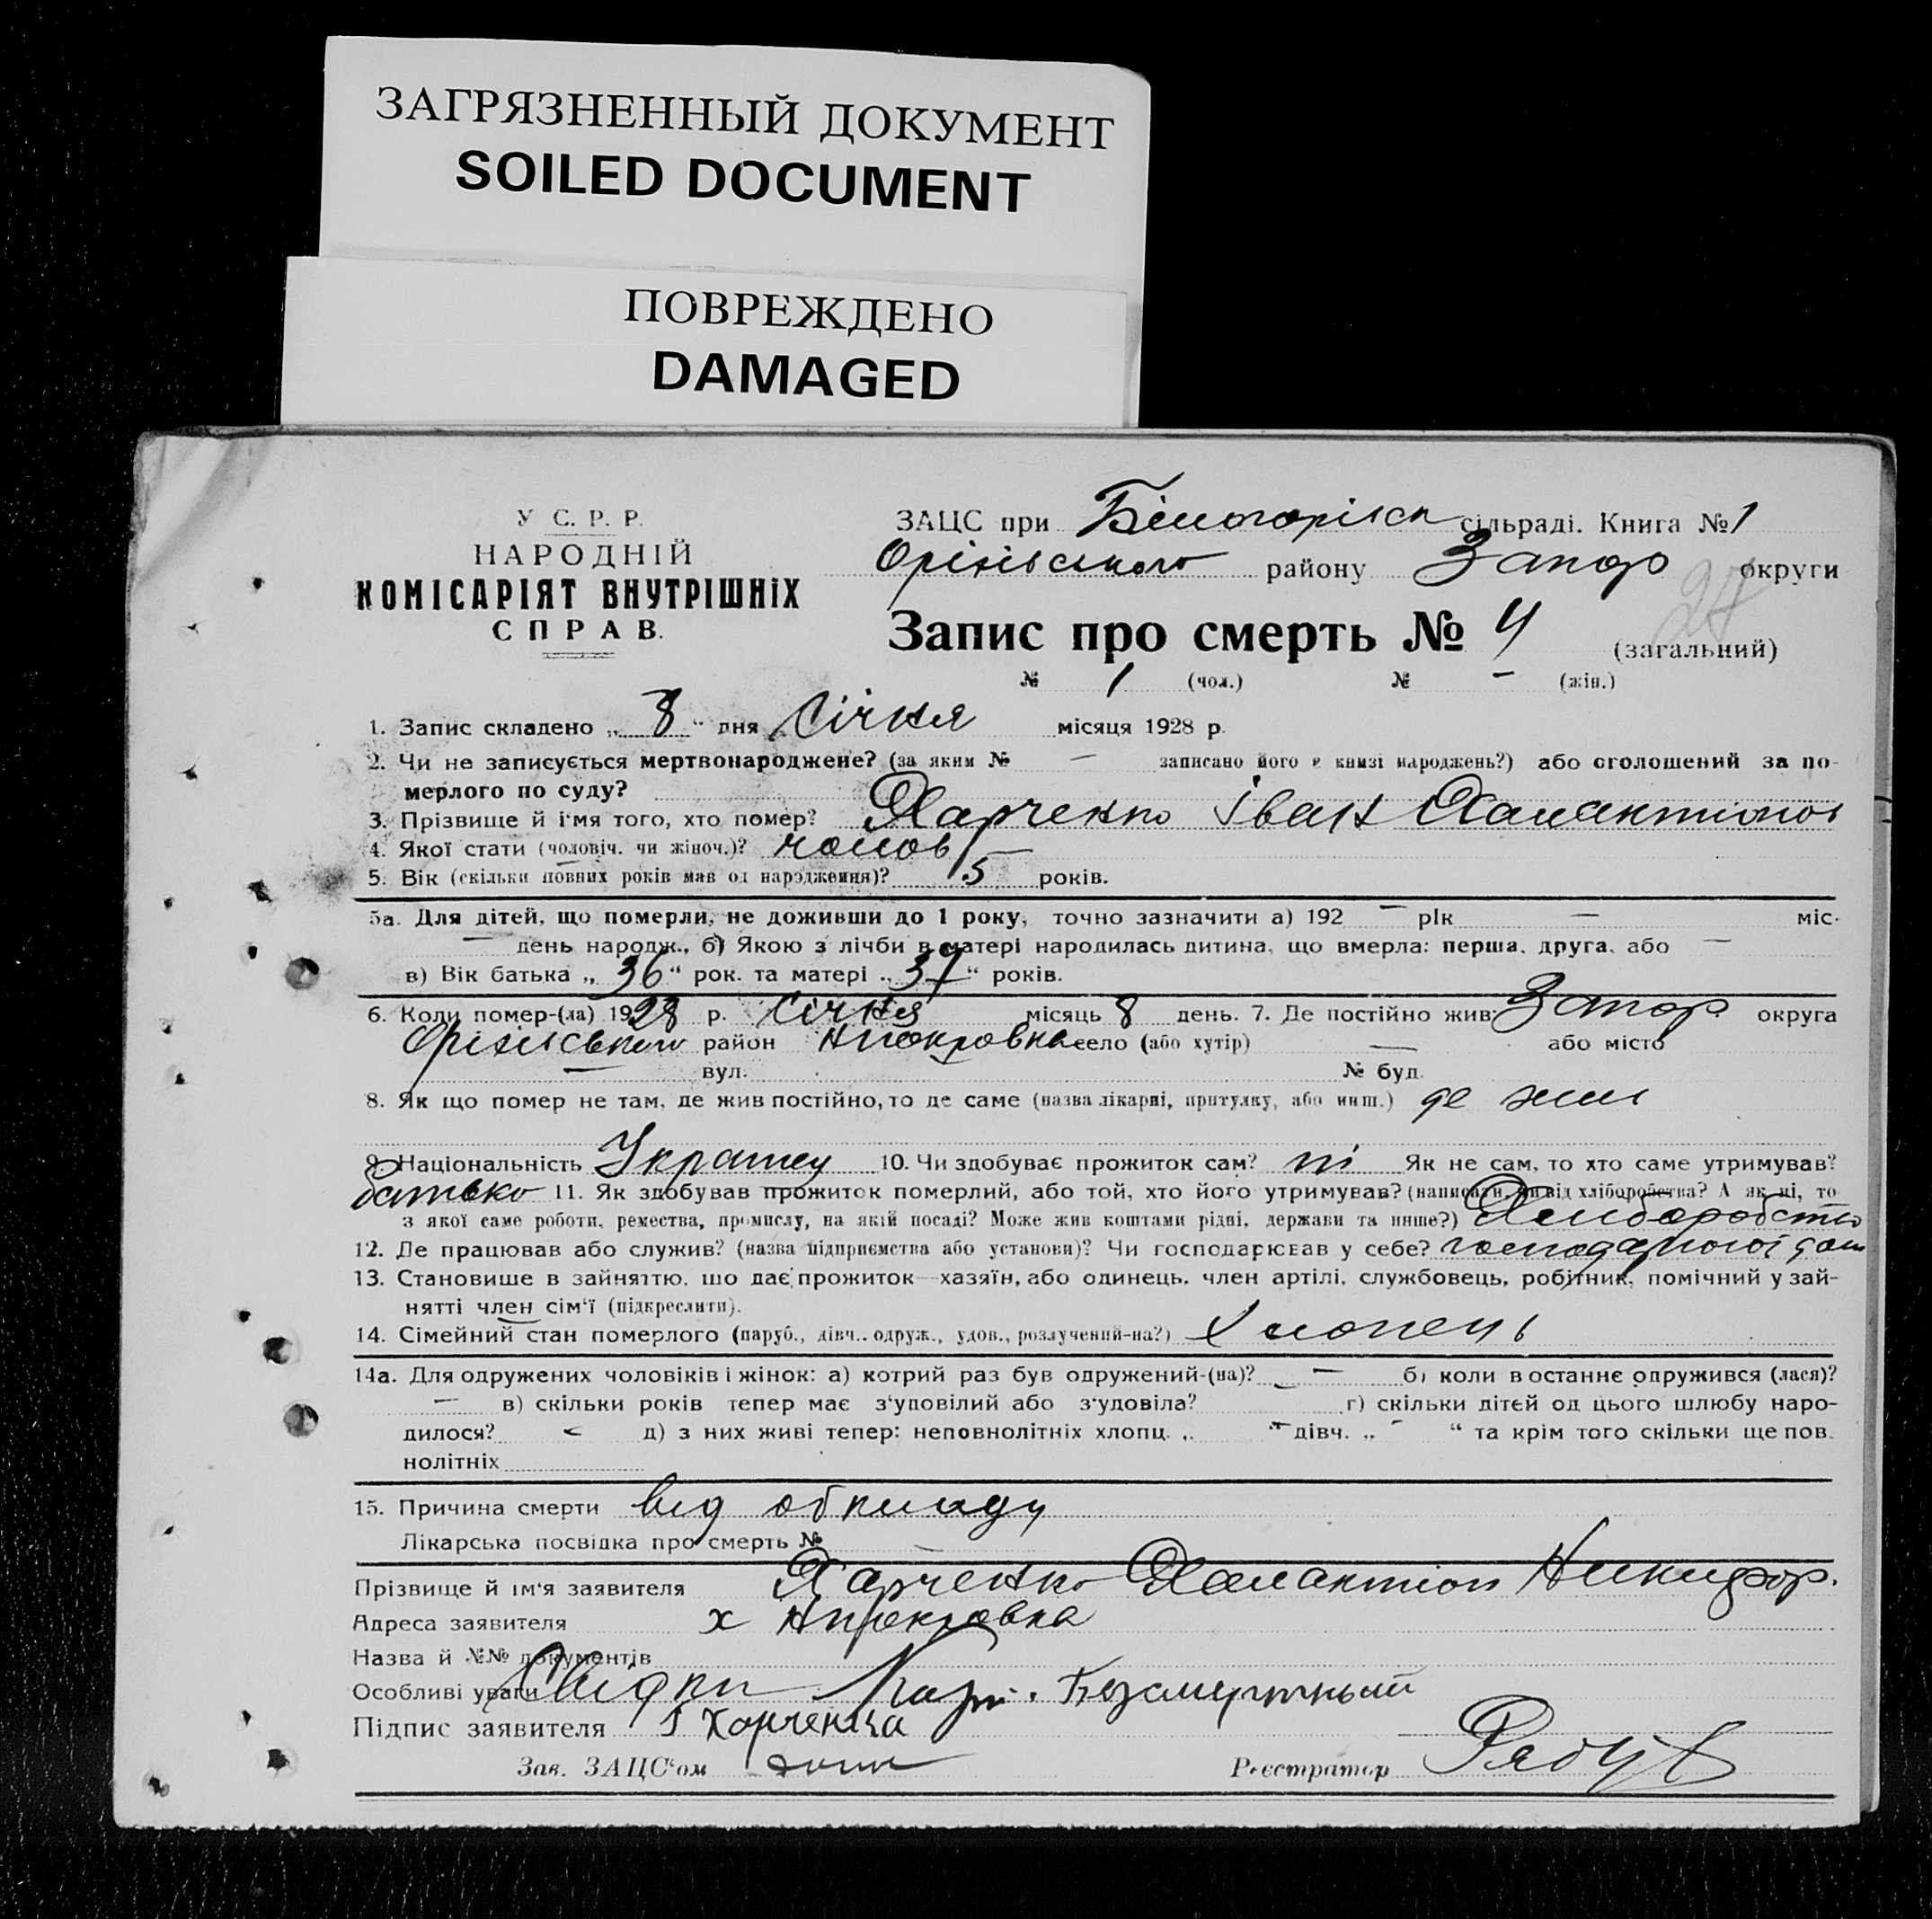 ЗАГРЯЗНЕННЫЙ ДОКУМЕНТ
SOILED DOCUMENT
ПОВРЕЖДЕНО
DAMAGED
У С. Р. Р.
НАРОДНІЙ
КОМІСАРІЯТ ВНУТРІШНІХ
СПРАВ.
ЗАЦС при Білогорівск сільраді. Книга № 1
Оріхівського району Запор округи
Запис про смерть № 4 (загальний)
27
№ 1 (чол.) № — (жін.)
1. Запис складено „ 8 “ дня Січня місяця 1928 р.
2. Чи не записується мертвонароджене? (за яким № — записано його в книзі народжень?) або оголошений за по-
мерлого по суду?
3. Прізвище й ім'я того, хто помер? Харченко Іван Халактіонов
4. Якої стати (чоловіч. чи жіноч.)? чолов
5. Вік (скільки повних років мав од народження)? 5 років.
5а. Для дітей, що померли, не доживши до 1 року, точно зазначити а) 192 — рік — міс.
— день народж., б) Якою з лічби в матері народилась дитина, що вмерла: перша, друга, або —
в) Вік батька „ 36 “ рок. та матері „ 37 “ років.
6. Коли помер-(ла) 1928 р. Січня місяць 8 день. 7. Де постійно жив: Запор. округа
Оріхівського район село (або хутір) — або місто
— вул. № буд.
8. Як що помер не там, де жив постійно, то де саме (назва лікарні, притулку, або инш.) де жил
9. Національність Украінец 10. Чи здобуває прожиток сам? ні Як не сам, то хто саме утримував?
батько 11. Як здобував прожиток померлий, або той, хто його утримував? (написати, чи від хліборобства? А як ні, то
з якої саме роботи, ремества, промислу, на якій посаді? Може жив коштами рідні, держави та инше?) Хліборобство
12. Де працював або служив? (назва підприємства або установи)? Чи господарював у себе?
13. Становище в зайняттю, що дає прожиток—хазяїн, або одинець, член артілі, службовець, робітник, помічний у зай-
нятті член сім'ї (підкреслити).
14. Сімейний стан померлого (паруб., дівч., одруж., удов., розлучений-на?) Хлопець
14а. Для одружених чоловіків і жінок: а) котрий раз був одружений-(на)? — б) коли востаннє одружився (лася)?
— в) скільки років тепер має з'уповілий або з'удовіла? г) скільки дітей од цього шлюбу наро-
дилося? — д) з них живі тепер: неповнолітніх хлопц. „ — дівч. „ — “ та крім того скільки ще пов.
нолітніх
15. Причина смерти від обкладу
Лікарська посвідка про смерть № —
Прізвище й ім'я заявителя Харченко Халактіон Никифор.
Адреса заявителя х
Назва й №№ документів
Особливі уваги Свідки Безсмертный
Підпис заявителя Харченка
Зав. ЗАЦС'ом Реєстратор